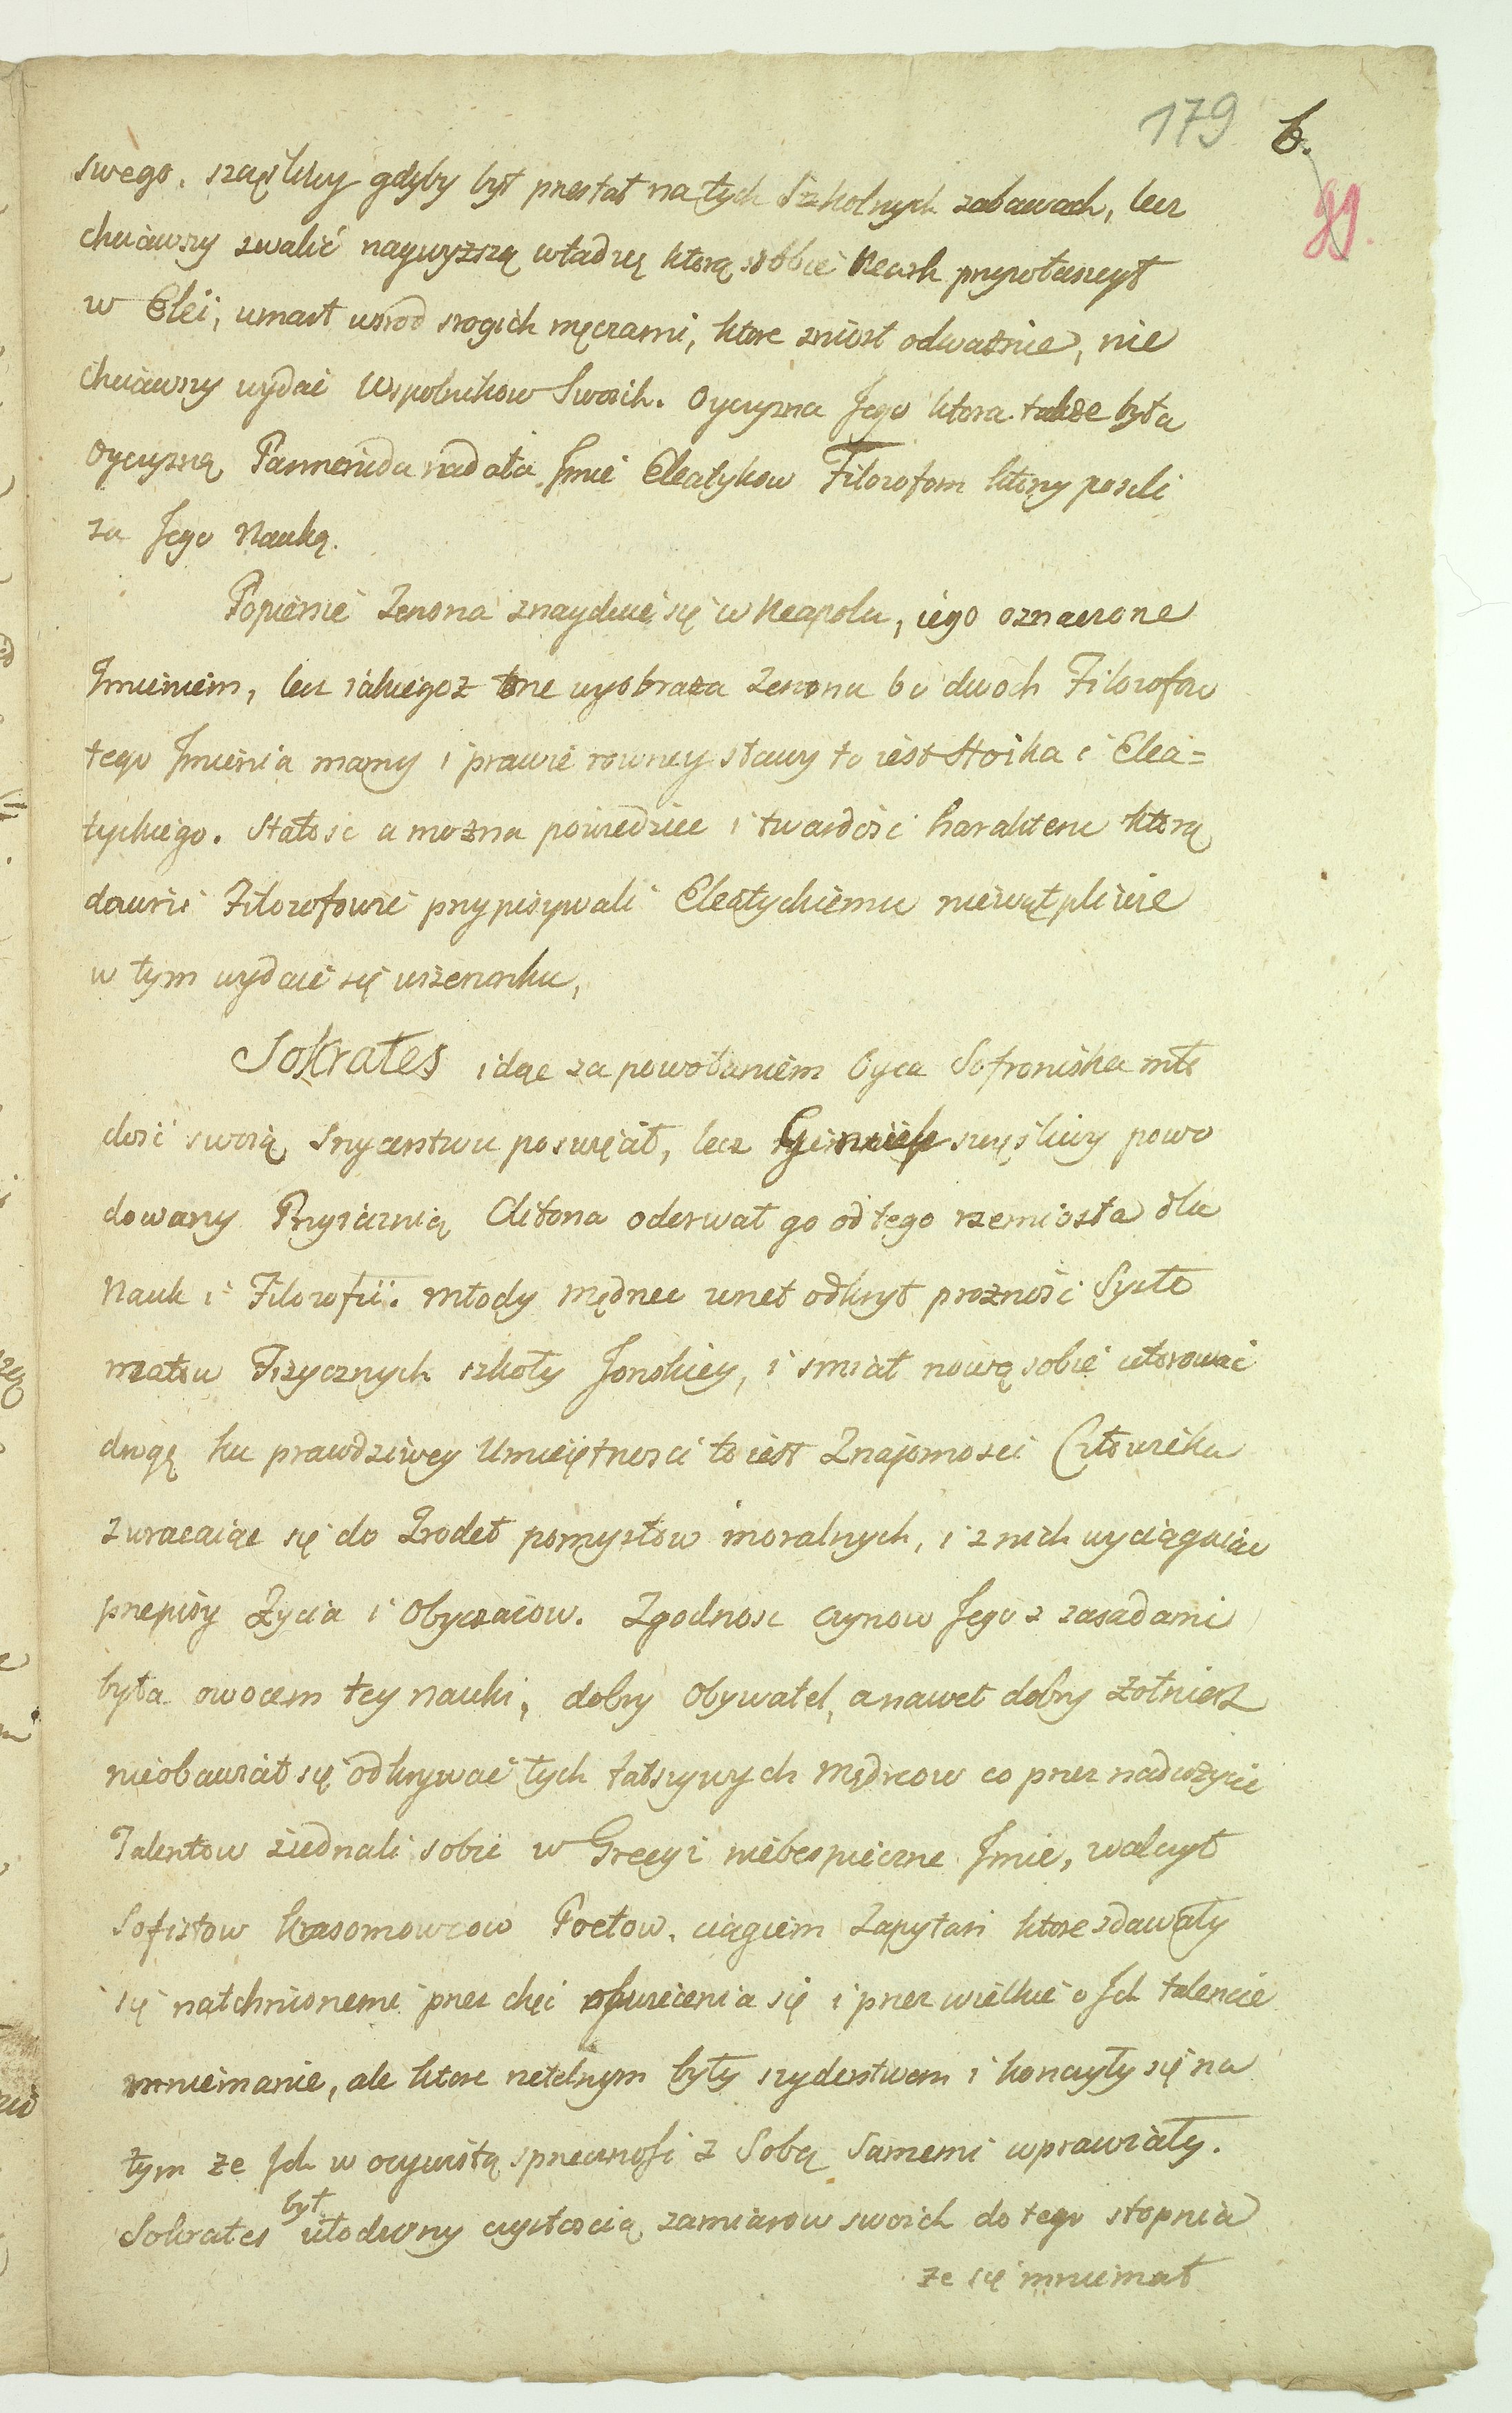 179 6.
99.
swego. szczęsliwy gdyby był przestał na tych Szkolnych zabawach, lecz
chciawszy zwalić naywyższą władzę ktorą sobie Neark przywłaszczył
w Elei, umarł wsrod srogich męczarni, ktore zniosł odważnie, nie
chciawszy wydać Wspolnikow Swoich. Oyczyzna Jego ktora także była
Oyczyzną Parmenida nadała Jmie Eleatykow Filozofom ktorzy poszli
za Jego Nauką.
Popiersie Zenona znayduie się w Neapolu, iego oznaczone
Jmieniem, lecz iakiegoz one wyobraża Zenona bo dwoch Filozofow
tego Jmienia mamy i prawie rowney sławy to iest Stoika i Elea=
tyckiego. Stałosc a można powiedziec i twardość harakteru ktorą
dawni Filozofowie przypisywali Eleatyckiemu niewątpliwie
w tym wydaie się wizerunku,
Sokrates idąc za powołaniem Oyca Sofroniska mło
dość swoią Snycerstwu poswięcał, lecz szczęśliwy powo
dowany Przyiaznią Critona oderwał go od tego rzemiosła dla
Nauk i Filozofii. Młody mędrzec wnet odkrył prozność Syste
matow Fizycznych szkoły Jonskiey, i smiał nową sobie utorować
drogę ku prawdziwey Umieiętnosci to iest Znajomosci Człowieka
zwracaiąc się do Zrodeł pomysłow moralnych, i z nich wyciągaiąc
przepisy Życia i Obyczaiow. Zgodnosc czynow Jego z zasadami
była owocem tey nauki, dobry Obywatel, a nawet dobry żołnierz
nieobawiał się odkrywać tych fałszywych Mędrcow co przez nadużycie
Talentow ziednali sobie w Grecyi niebespieczne Jmie, walczył
Sofistow Krasomowcow Poetow. ciągiem Zapytań ktore zdawały
się natchnionemi przez chęć oswiecenia się i przez wielkie o Jch talencie
mniemanie, ale ktore rzetelnym były szyderstwem i konczyły się na
tym ze Jch w oczywistą sprzecznosc z Sobą Samemi wprawiały.
Sokrates był utodwny czystoscią zamiarow swoich do tego stopnia
ze się mniemał